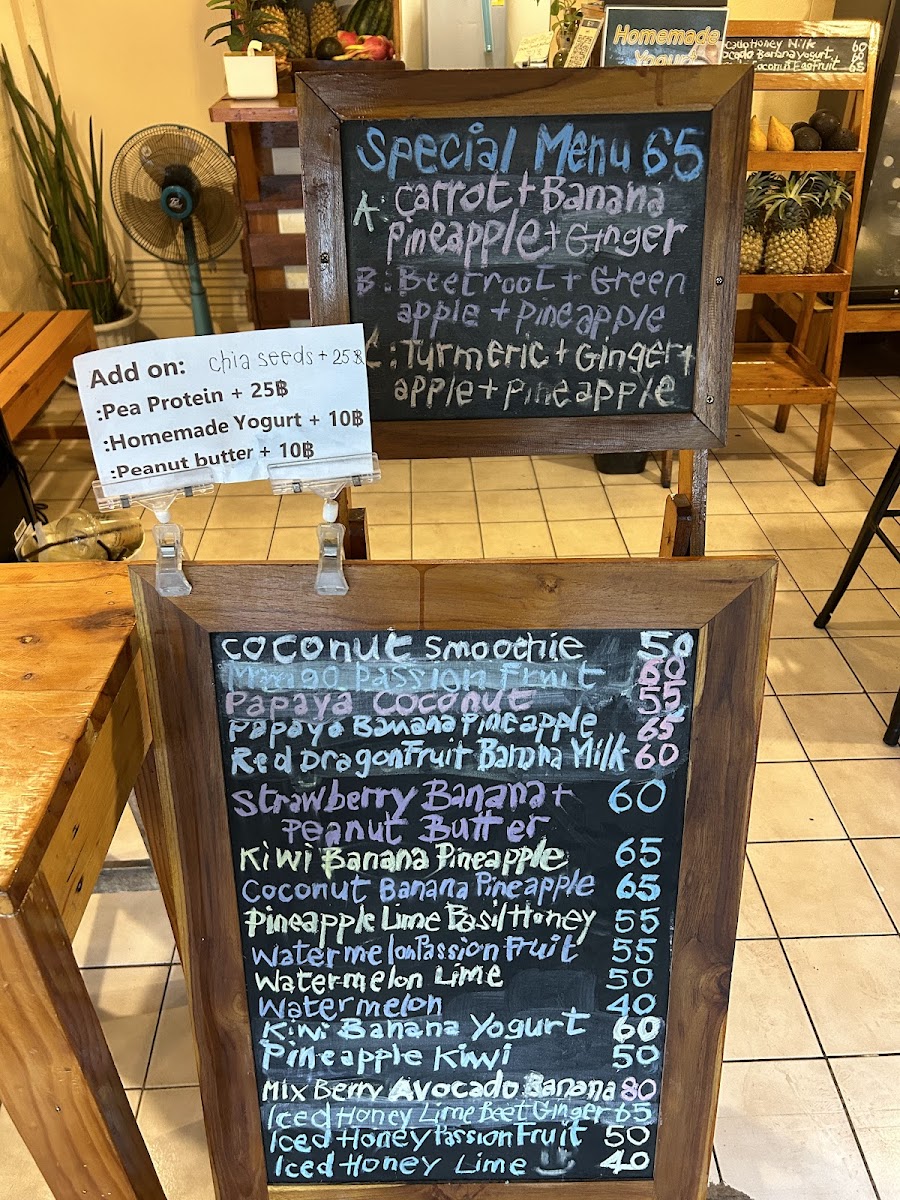 Homemade
Yogurt
cado Honey Milk 60
ocado Banana Yogurt
Coconut Eggfruit 65
Special Menu 65
A: Carrot + Banana
Pineapple + Ginger
B: Beetroot + Green
apple + pineapple
C: Turmeric + Ginger +
apple + pineapple
Add on: chia seeds + 25฿
:Pea Protein + 25฿
:Homemade Yogurt + 10฿
:Peanut butter + 10฿
Coconut Smoothie 50
Mango Passion Fruit 60
Papaya Coconut 55
Papaya Banana Pineapple 65
Red DragonFruit Banana Milk 60
Strawberry Banana + 60
Peanut Butter
Kiwi Banana Pineapple 65
Coconut Banana Pineapple 65
Pineapple Lime Basil Honey 55
Watermelon Passion Fruit 55
Watermelon Lime 50
Watermelon 40
Kiwi Banana Yogurt 60
Pineapple Kiwi 50
Mix Berry Avocado Banana 80
Iced Honey Lime Beet Ginger 65
Iced Honey Passion Fruit 50
Iced Honey Lime 40